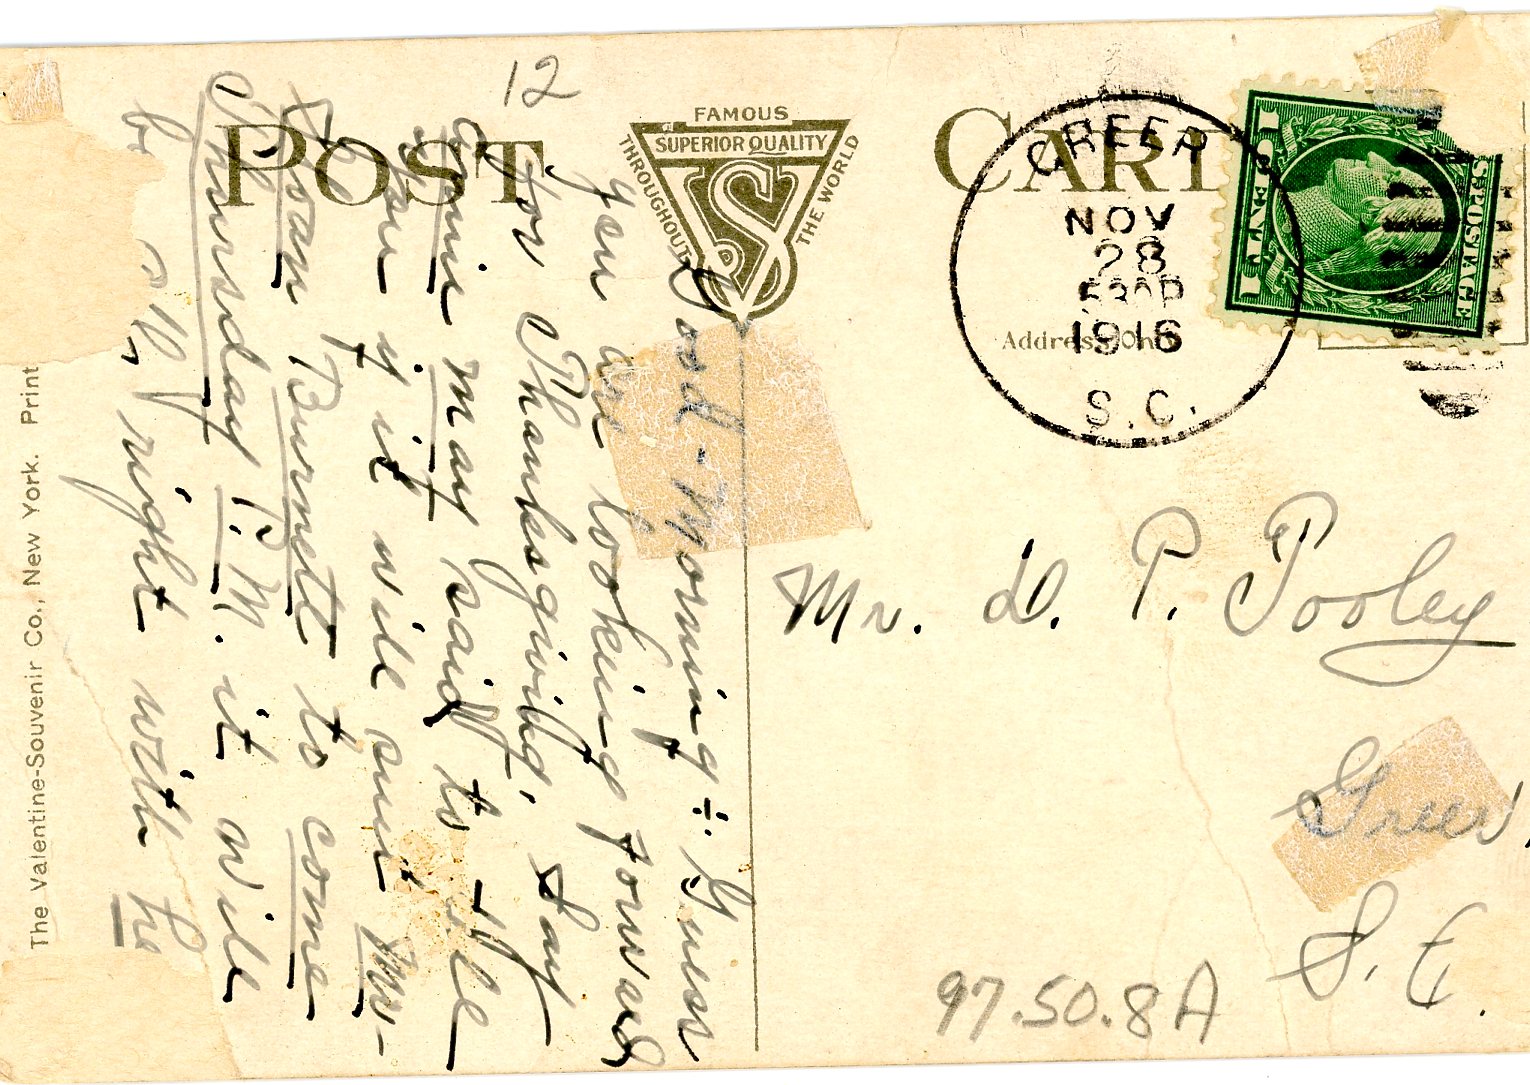 12
POST CARD
FAMOUS
SUPERIOR QUALITY
THROUGHOUT THE WORLD
GREER
NOV
28
530P
1916
S.C.
U.S. POSTAGE
1 CENT 1
Address Only
Good-Morning ÷. Guess
you are looking forward
for Thanksgiving, Say
Annie may said to tell
you if it will suit Mr-
Sloan Burnett to come
Thursday P.M. it will
be all right with he
Mr. D. P. Pooley
Greer,
S. C.
97.50.8A
The Valentine-Souvenir Co., New York. Print